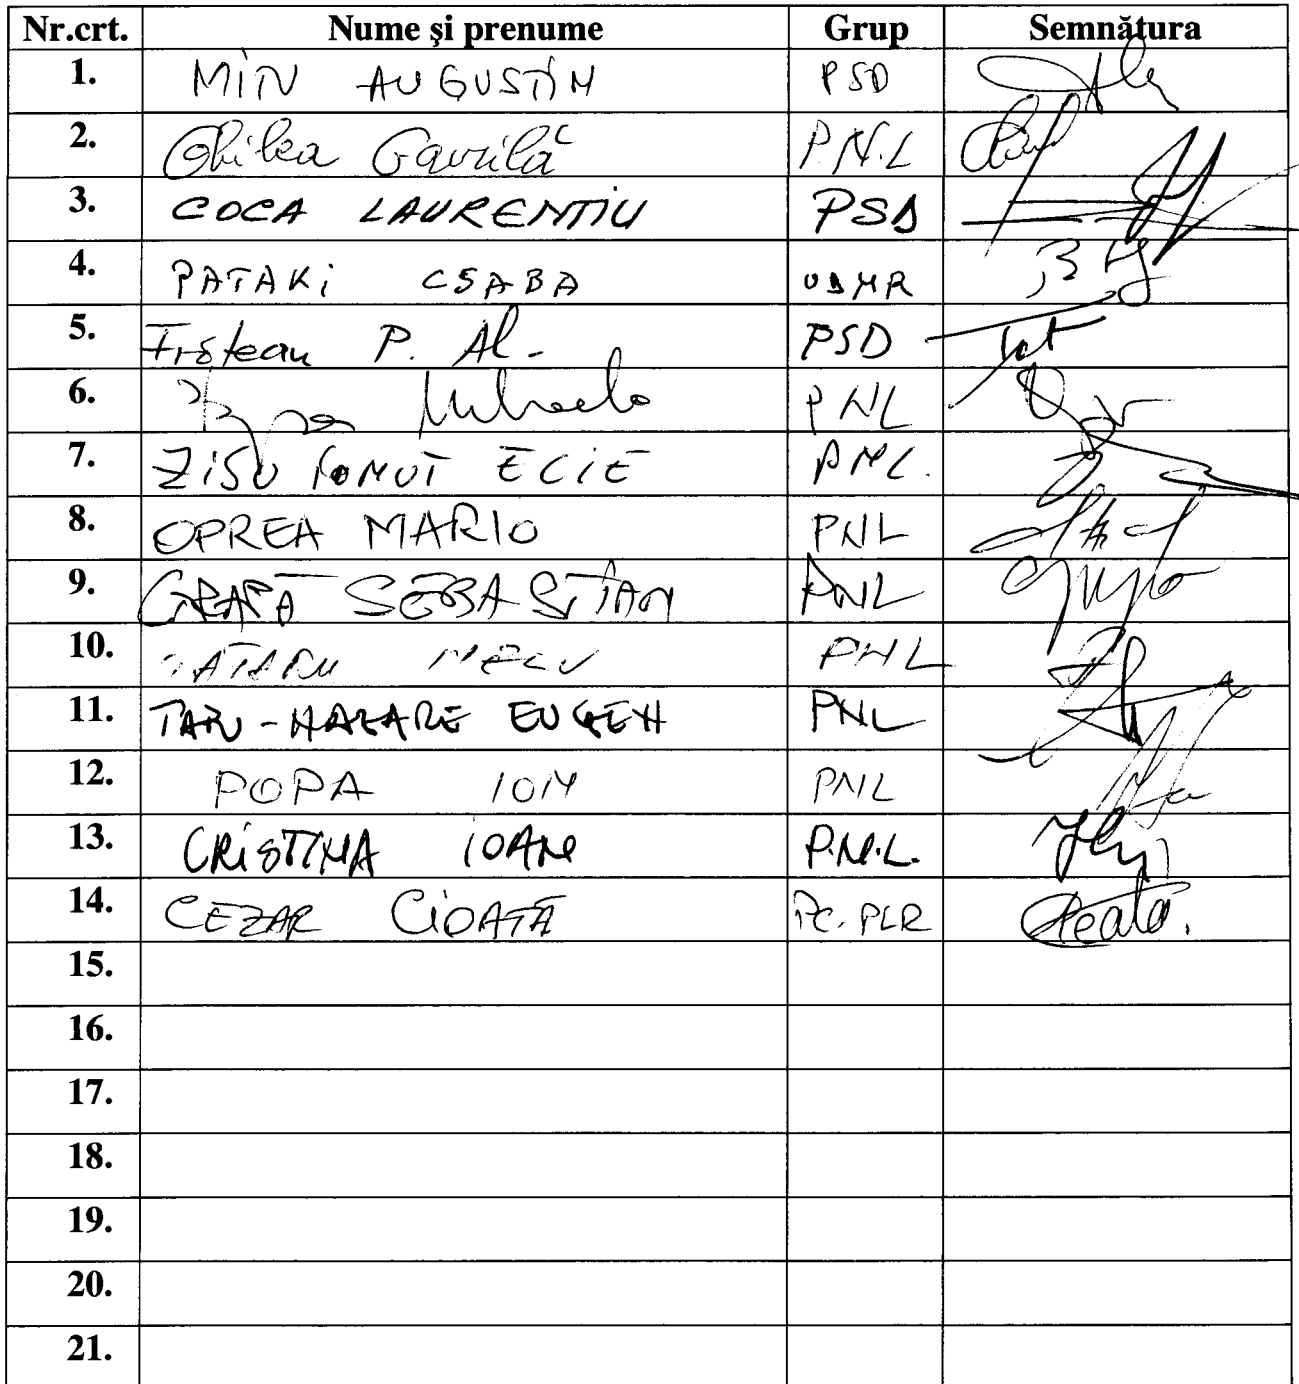 Nr.crt. Nume şi prenume Grup Semnătura
1. MITU AUGUSTIN PSD
2. Ghilea Gavrilă P.N.L
3. COCA LAURENTIU PSD
4. PATAKI CSABA UDMR
5. P. Al. PSD
6. Mihaela PNL
7. ZISU IONUT ELIE PNL.
8. OPREA MARIO PNL
9. GRAPĂ SEBASTIAN PNL
10. TATARU NELU PNL
11. EUGEN PNL
12. POPA ION PNL
13. CRISTINA IOAN P.N.L.
14. CEZAR CIOATĂ PC. PLR
15.
16.
17.
18.
19.
20.
21.